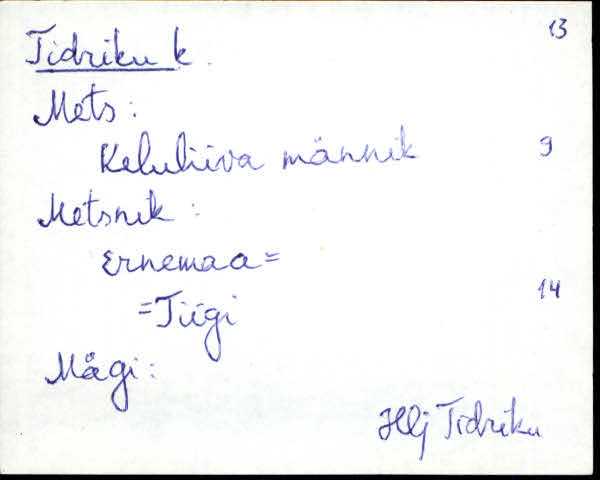 13
Tidriku k.
Mets:
Keluliiva männik 9
Metsnik:
Ernemaa=
=Tiigi 14
Mägi:
Hlj Tidriku